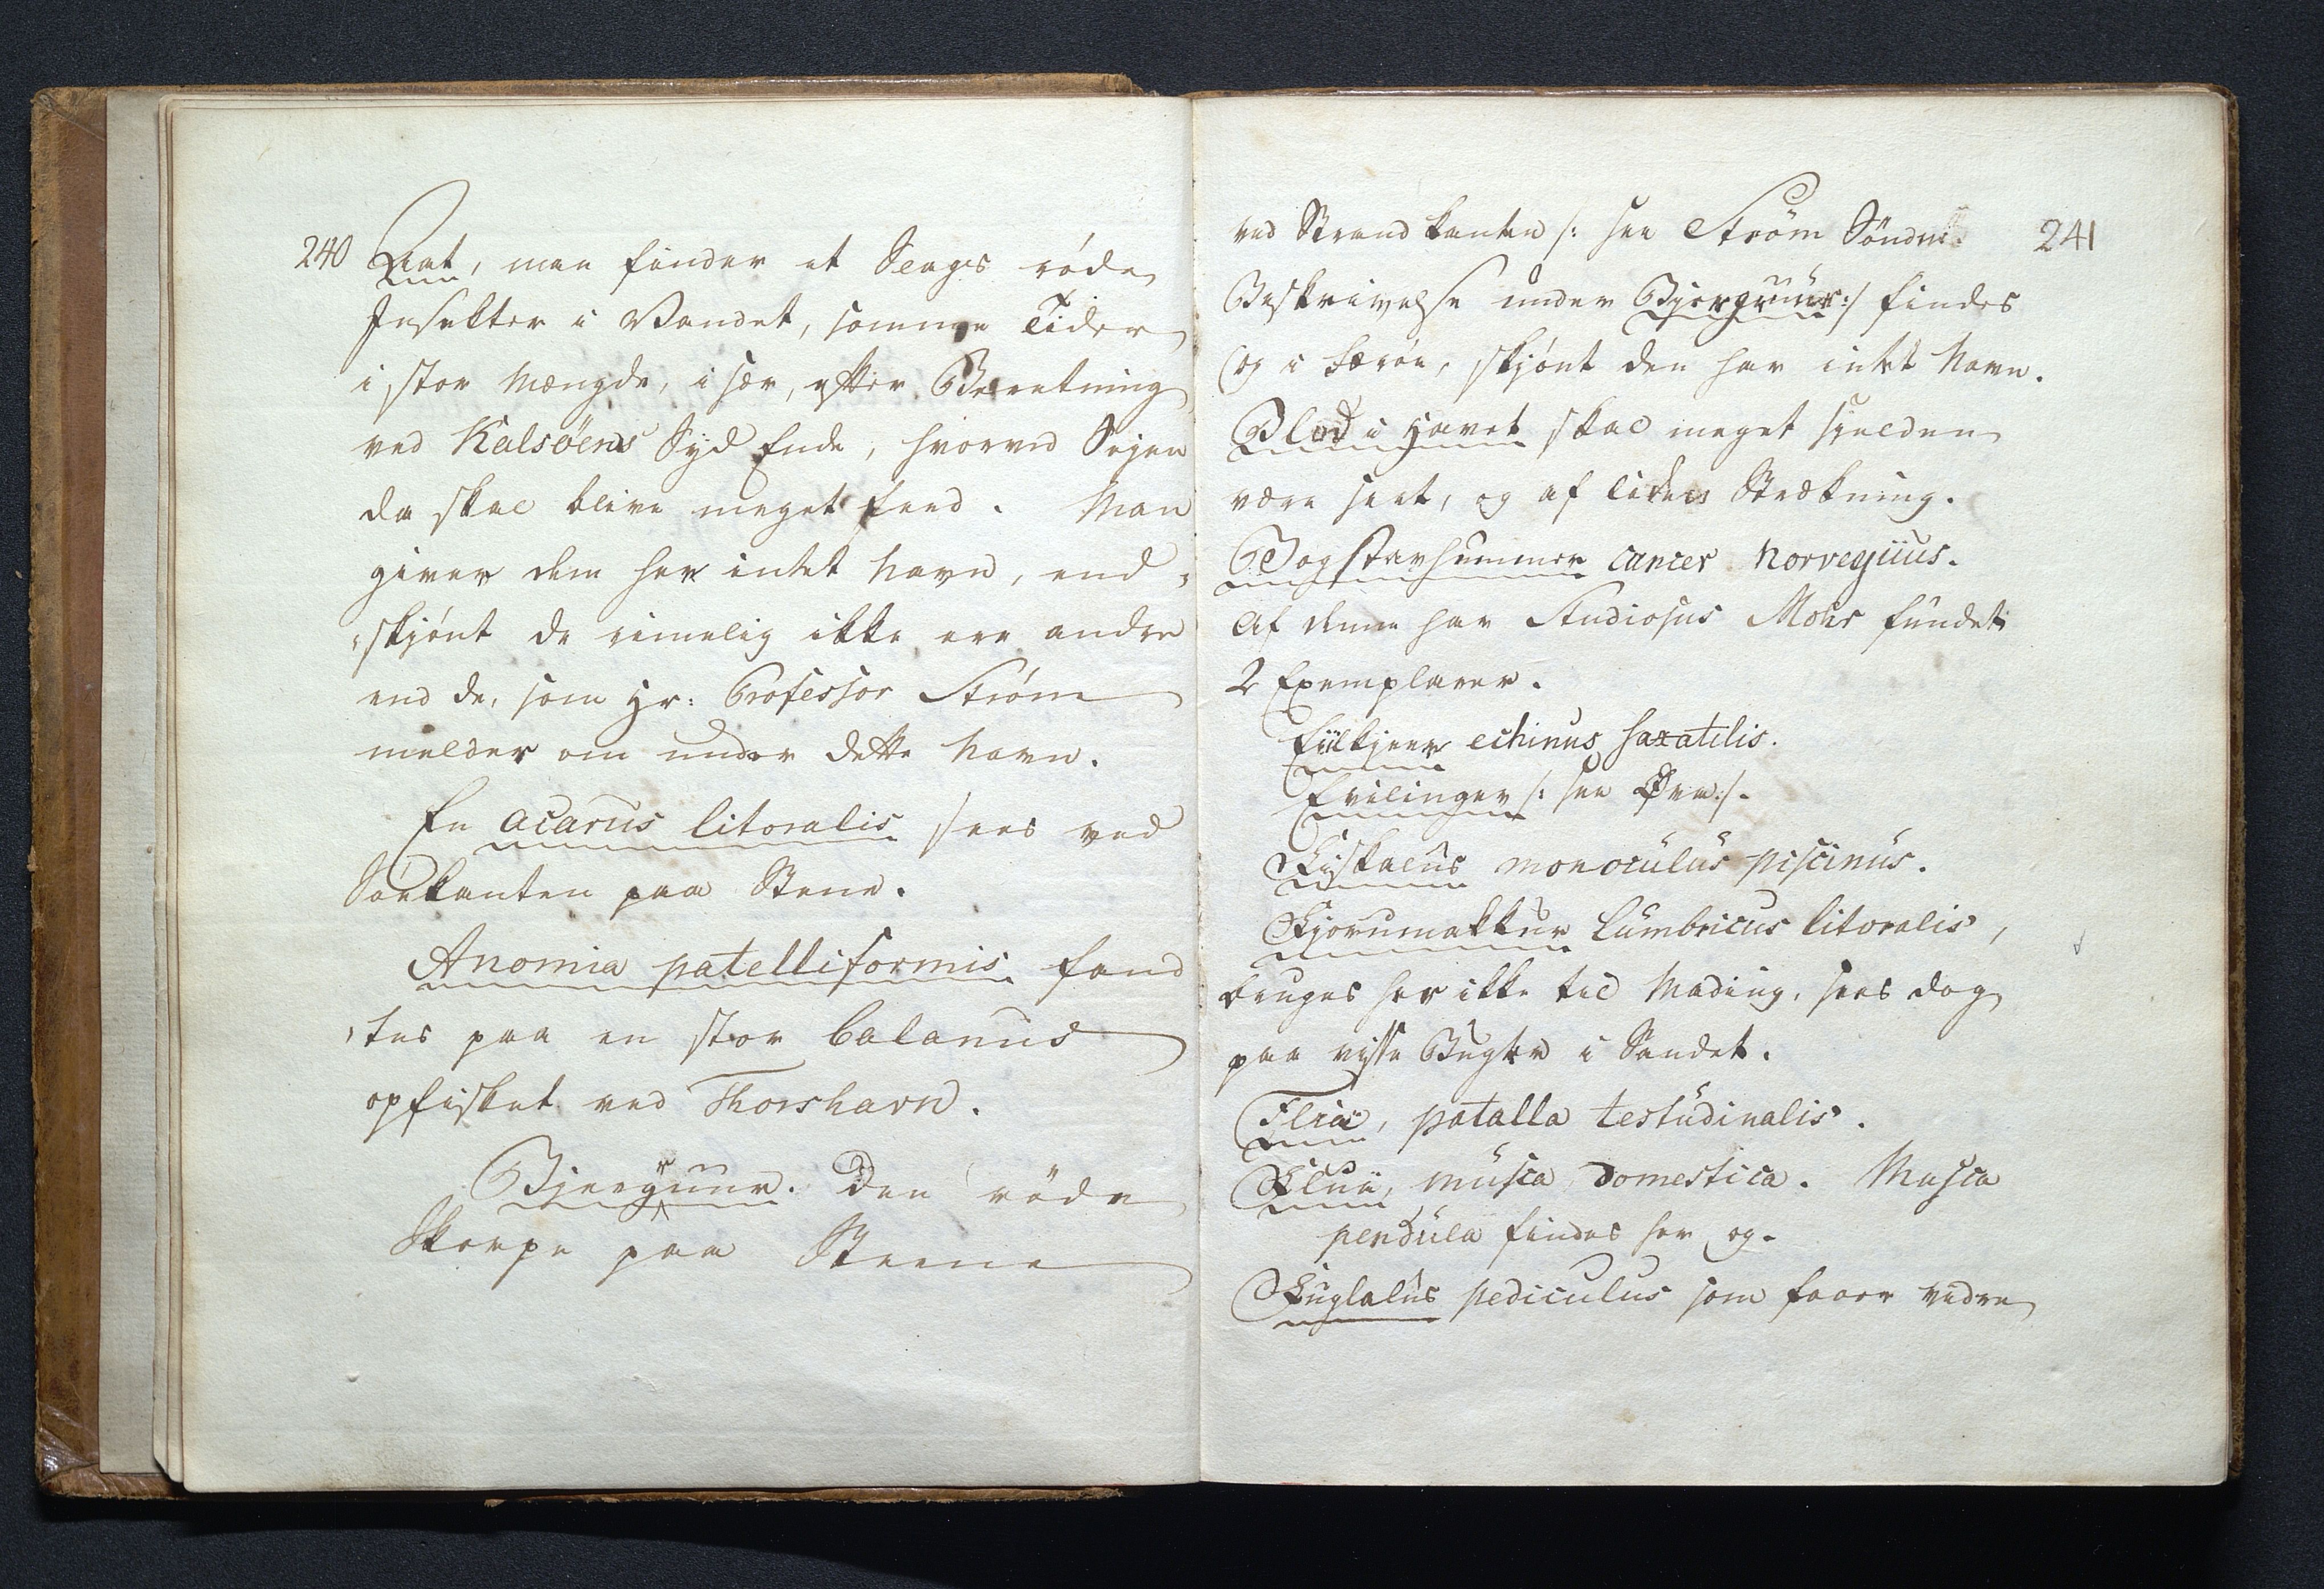 240
Aat, man finder et Slags røde
Insekter i Vandet, somme Tider
i stor Mængde, i sær, efter Beretning
ved Kalsøens Syd Ende, hvorved Sejen
da skal blive meget feed. Man
giver dem her intet Navn, end„
„skjønt de rimelig ikke ere andre
end de, som Hr: Professor Strøm
melder om under dette Navn.
En acarus litoralis sees ved
Søekanten paa Stene.
Anomia patelliformis fand
„tes paa en stor balanus
opfisket ved Thorshavn.
Bjergruur. Den røde
Skorpe paa Steene
241
ved Strandkanten /: see Strøm Söndm.
Beskrivelse under Bjergruur :/ findes
og i Færøe, skjønt den har intet Navn.
Blod i Havet skal meget sielden
være seet, og af liden Strækning.
Bogstavhummer cancer Norvegiius.
Af denne har Studiosus Mohr fundet
2 Exemplarer.
echinus saxatilis.
/: see Øre :/.
Fiskalus monoculus piscinus.
Fjorumakkur Lumbricus litoralis,
bruges her ikke til Mading, sees dog
paa visse Bugter i Sandet.
Flia, patalla testudinalis.
Flua, musca domestica. Musca
pendula findes her og.
Fuglalus pediculus som faaer vidre